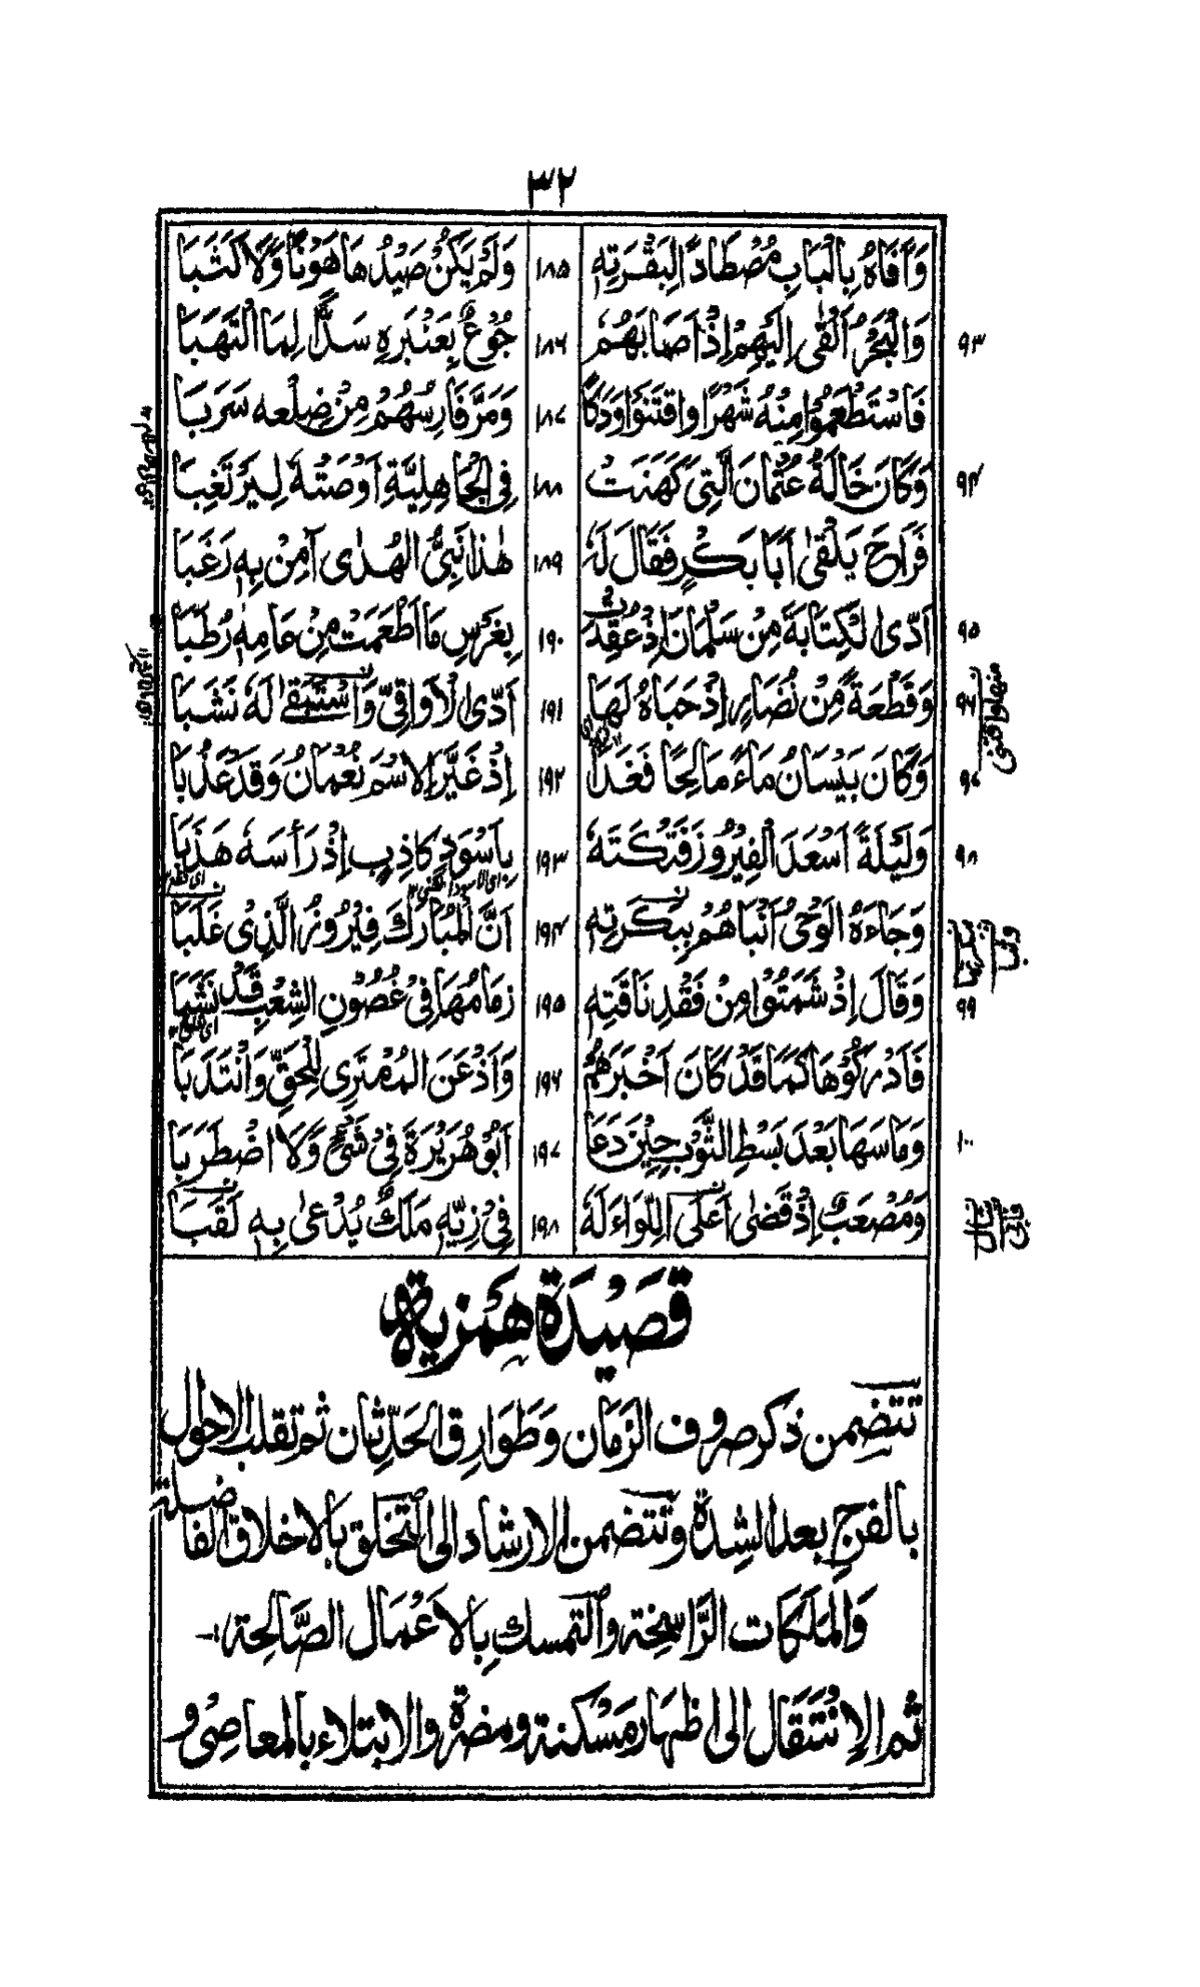 ٣٢
وَافَاهُ بِالْبَابِ مُصْطَادَ الْبَقْرَتِهِ ١٨٥ وَلَمْ يَكُنْ صَيْدُهَا هَوْنًا وَّلَا كَثَبَا
٩٣ وَالْبَحْرُ اَلْقٰى اِلَيْهِمْ اِذْ اَصَابَهُمْ ١٨٦ جُوْعٌ بِعَنْبَرِهٖ سَدًّا لِمَا الْتَهَبَا
فَاسْتَطْعَمُوْا مِنْهُ شَهْرًا وَاقْتَنَوْا وَدَكًا ١٨٧ وَمَرَّ فَارِسُهُمْ مِنْ ضِلْعِه سَرَبَا
٩٤ وَكَانَ خَالَةُ عُثْمَانَ الَّتِىْ كَهَنَتْ ١٨٨ فِى الْجَاهِلِيَّةِ اَوْصَتْهُ لِيَرْتَغِبَا
فَرَاحَ يَلْقٰى اَبَا بَكْرٍ فَقَالَ لَهٗ ١٨٩ هٰذَا نَبِىُّ الْهُدٰى آمِنْ بِهٖ رَغَبَا
٩٥ اَدَّى الْكِتَابَةَ مِنْ سَلْمَانَ اِذْ عُقِدَتْ ١٩٠ بِغَرْسِ مَا اَطْعَمَتْ مِنْ عَامِهٖ رُطَبَا
٩٦ وَقِطْعَةً مِّنْ نُضَارٍ اِذْ حَبَاهُ لَهَا ١٩١ اَدّٰى الْاَوَاقِىَّ وَاسْتَبْقٰى لَهٗ نَشَبَا
٩٧ وَكَانَ بَيْسَانُ مَاءً مَالِحًا فَغَدَا ١٩٢ اِذْ غَيَّرَ الِاسْمَ نُعْمَانُ وَقَدْ عَذُبَا
٩٨ وَلَيْلَةً اَسْعَدَ الْفِيْرُوْزَ فَتْكَتُهٗ ١٩٣ بِاَسْوَدٍ كَاذِبٍ اِذْ رَأْسَهٗ هَذَبَا
وَجَاءَهُ الْوَحْىُ اَنْبَاهُمْ بِبُكْرَتِهٖ ١٩٤ اَنَّ الْمُبَارَكَ فِيْرُوْزُ الَّذِىْ غَلَبَا
٩٩ وَقَالَ اِذْ شَمَتُوْا مِنْ فَقْدِ نَاقَتِهٖ ١٩٥ زِمَامُهَا فِىْ غُصُوْنِ الشِّعْبِ قَدْ نَشَبَا
فَاَدْرَكُوْهَا كَمَا قَدْ كَانَ اَخْبَرَهُمْ ١٩٦ وَاَذْعَنَ الْمُمْتَرِى لِلْحَقِّ وَانْتَدَبَا
١٠٠ وَمَا سَهَا بَعْدَ بَسْطِ الثَّوْبِ حِيْنَ دَعَا ١٩٧ اَبُوْ هُرَيْرَةَ فِىْ شَىْءٍ وَّلَا اضْطَرَبَا
وَمُصْعَبٌ اِذْ قَضٰى اَعْلَى اللِّوَاءَ لَهٗ ١٩٨ فِىْ زِيِّهٖ مَلَكٌ يُدْعٰى بِهٖ لَقَبَا
قَصِيْدَة هَمْزِيه
تتضمن ذكر صروف الزَمَان وَطَوَارِق الحَدِثَان ثم تقلب الاحوال
بالفرج بعد الشِدة وتتضمن الارشاد الى التخلق بالاخلاق الفاضلة
وَالمَلَكَات الرَّاسِخَة والتمسك بِالاَعْمَال الصَّالِحَة
ثم الِانْتَقَال الى اظهار مَسْكنة ومضرة والابتلاء بالمعاصِى و